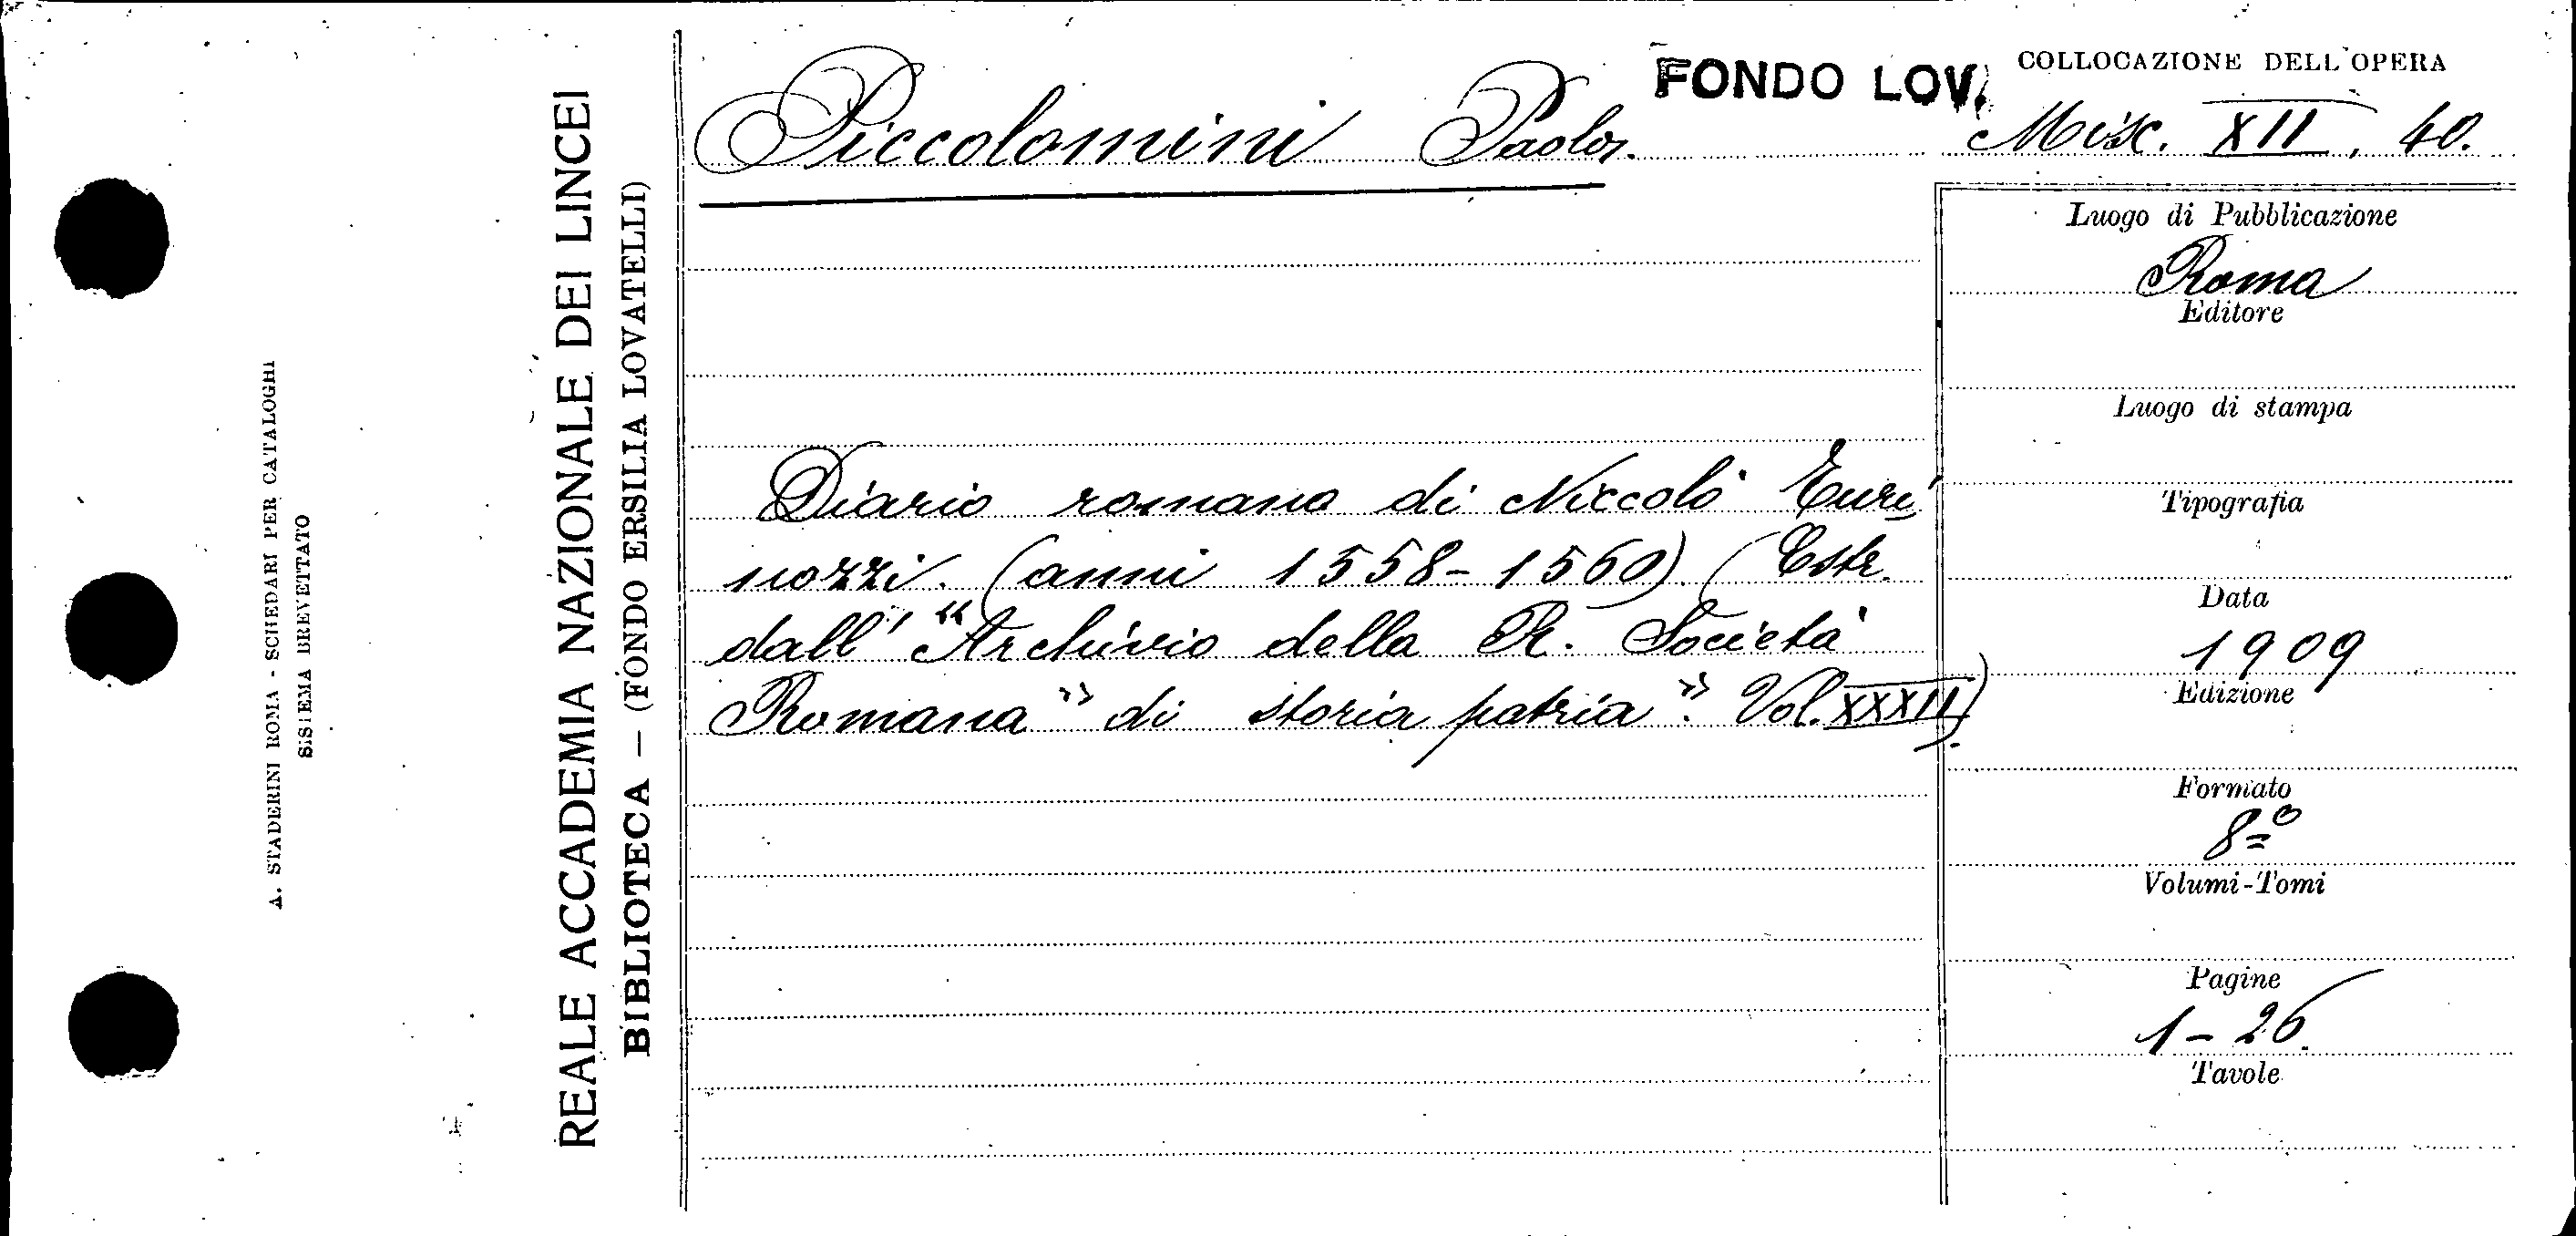 A. STADERINI ROMA - SCHEDARI PER CATALOGHI
SISTEMA BREVETTATO
REALE ACCADEMIA NAZIONALE DEI LINCEI
BIBLIOTECA — (FONDO ERSILIA LOVATELLI)
Piccolomini Paolo.
FONDO LOV.
COLLOCAZIONE DELL'OPERA
Misc. XII, 40.
Diario romano di Niccolò Turi
nozzi. (anni 1558-1560). (Estr.
dall' "Archivio della R. Società
Romana" di storia patria". Vol. XXXII).
Luogo di Pubblicazione
Roma
Editore
Luogo di stampa
Tipografia
Data
1909
Edizione
Formato
8º
Volumi-Tomi
Pagine
1-26.
Tavole